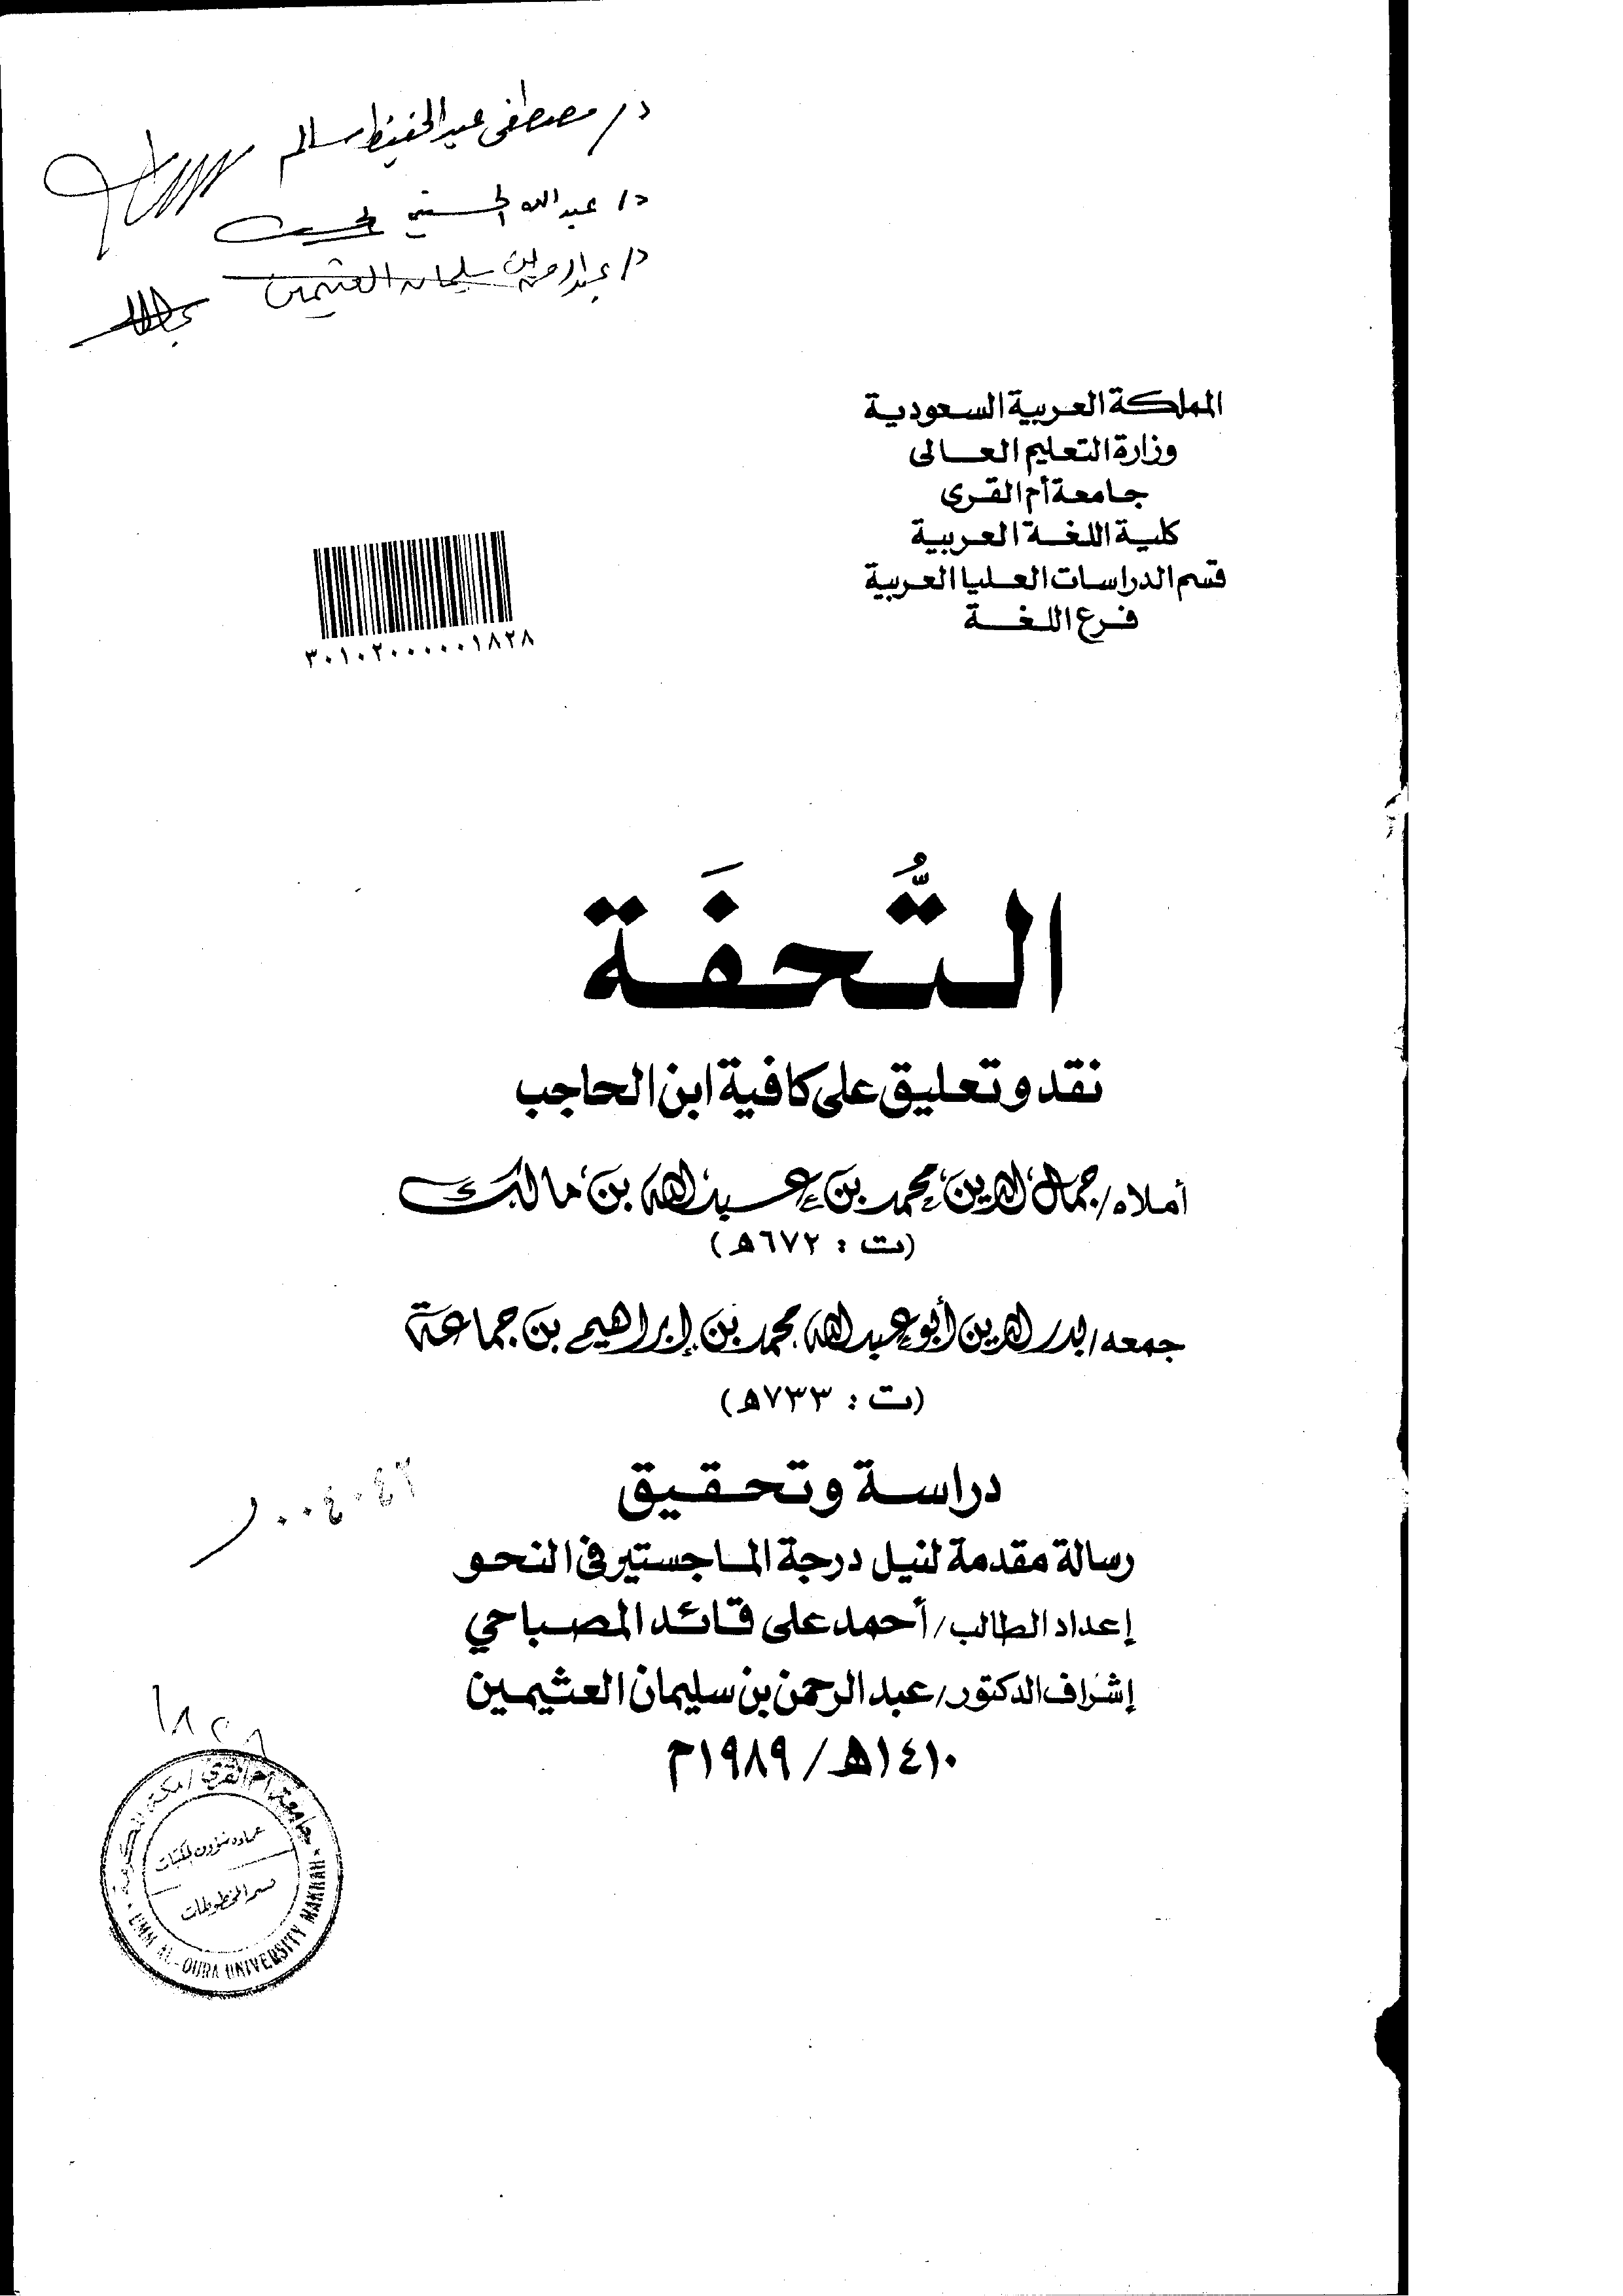 د/ مصطفى عبدالحفيظ سالم
د/ عبدالله الحسيني
د/ عبدالرحمن بن سليمان العثيمين
المملكة العربية السعودية
وزارة التعليم العالى
جامعة أم القرى
كلية اللغة العربية
قسم الدراسات العليا العربية
فرع اللغة
٣٠١٠٢٠٠٠٠٠١٨٢٨
التُّحفَة
نقد وتعليق على كافية ابن الحاجب
أملاه/ جمال الدين محمد بن عبدالله بن مالك
(ت : ٦٧٢هـ)
جمعه/ بدر الدين أبو عبدالله محمد بن إبراهيم بن جماعة
(ت : ٧٣٣هـ)
دراسة وتحقيق
رسالة مقدمة لنيل درجة الماجستير فى النحو
إعداد الطالب/ أحمد على قائد المصباحي
إشراف الدكتور/ عبد الرحمن بن سليمان العثيمين
١٤١٠هـ/ ١٩٨٩م
١٨٢٨
جامعة أم القرى / مكة المكرمة
عمادة شؤون المكتبات
قسم المخطوطات
UMM AL-QURA UNIVERSITY MAKKAH